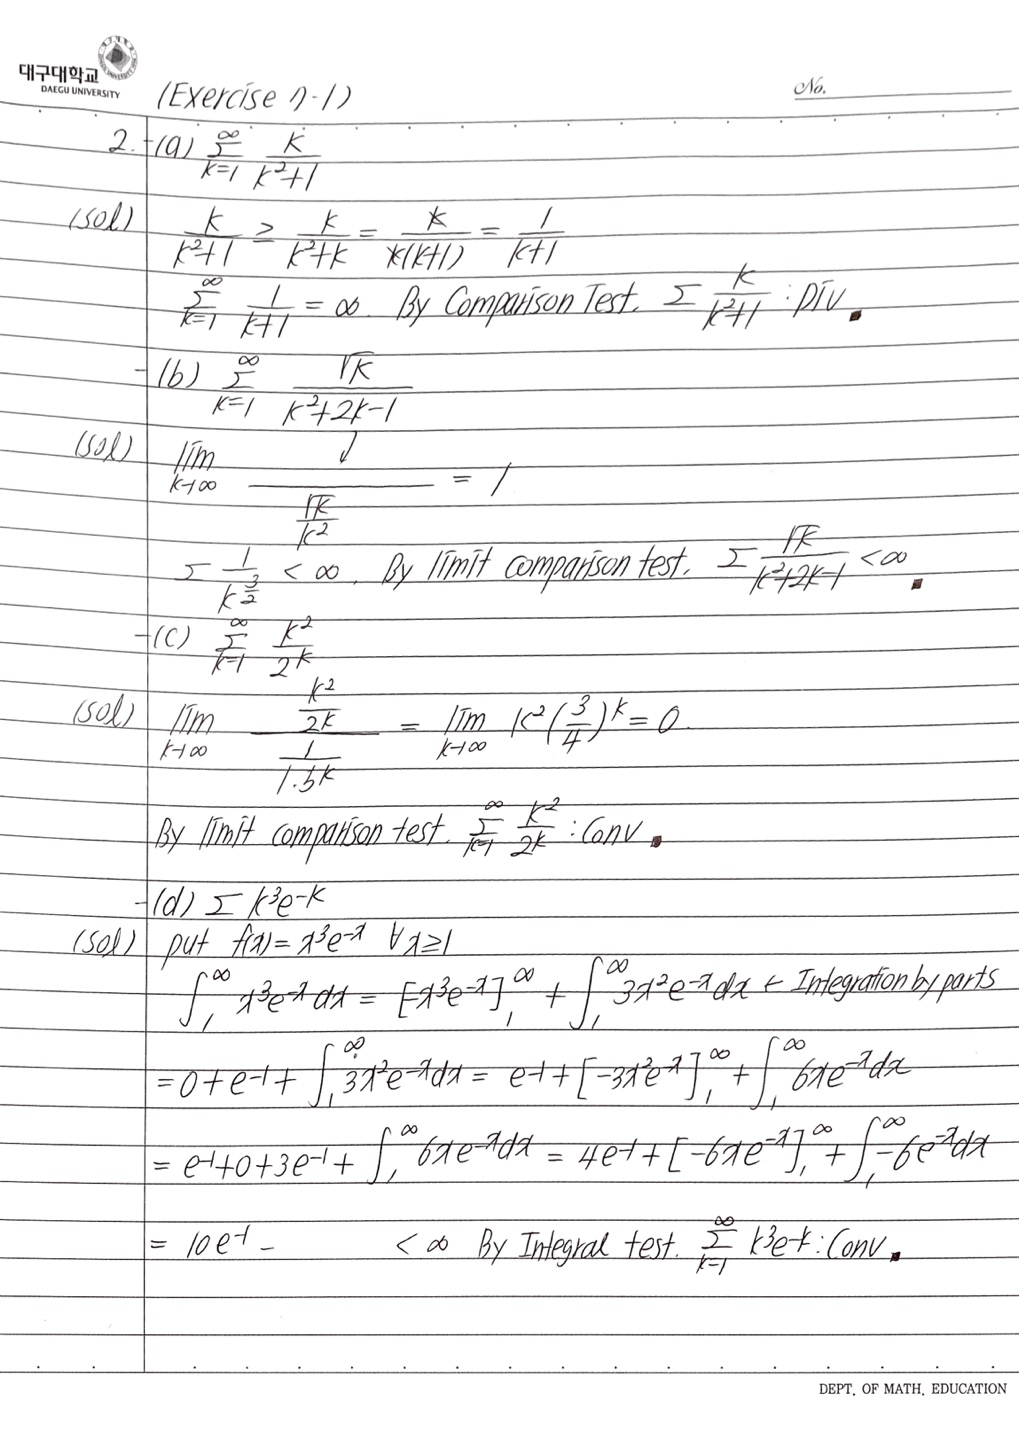 대구대학교
DAEGU UNIVERSITY
No.
(Exercise 7-1)
2. (a) ∞Σk=1 k/(k²+1)
(sol) k/(k²+1) ≥ k/(k²+k) = k/(k(k+1)) = 1/(k+1)
∞Σk=1 1/(k+1) = ∞. By Comparison Test. Σ k/(k²+1) : Div.
(b) ∞Σk=1 √k/(k²+2k-1)
(sol) lim k→∞ ↓/(√k/k²) = 1
Σ 1/k^(3/2) < ∞. By limit comparison test. Σ √k/(k²+2k-1) < ∞
(c) ∞Σk=1 k²/2^k
(sol) lim k→∞ (k²/2^k)/(1/1.5^k) = lim k→∞ k²(3/4)^k = 0.
By limit comparison test. ∞Σk=1 k²/2^k : Conv.
(d) Σ k³e^-k
(sol) put f(x) = x³e^-x ∀x≥1
∫₁^∞ x³e^-x dx = [-x³e^-x]₁^∞ + ∫₁^∞ 3x²e^-x dx ← Integration by parts
= 0 + e^-1 + ∫₁^∞ 3x²e^-x dx = e^-1 + [-3x²e^-x]₁^∞ + ∫₁^∞ 6xe^-x dx
= e^-1 + 0 + 3e^-1 + ∫₁^∞ 6xe^-x dx = 4e^-1 + [-6xe^-x]₁^∞ + ∫₁^∞ -6e^-x dx
= 10e^-1 - < ∞ By Integral test. ∞Σk=1 k³e^-k : Conv.
DEPT. OF MATH. EDUCATION